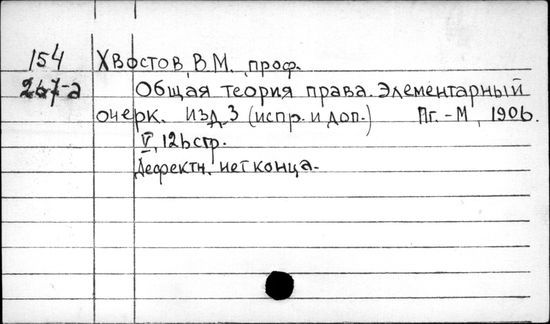 154 Хвостов, В.М., проф.
267-а Общая теория права. Элементарный
очерк. Изд. 3 (испр. и доп.) Пг.-М, 1906.
V, 126 стр.
Дефектн. нет конца.